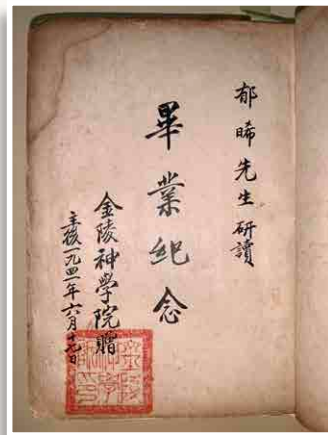 郁晞先生研讀
畢業紀念
金陵神學院贈
主後一九四一年六月十七日